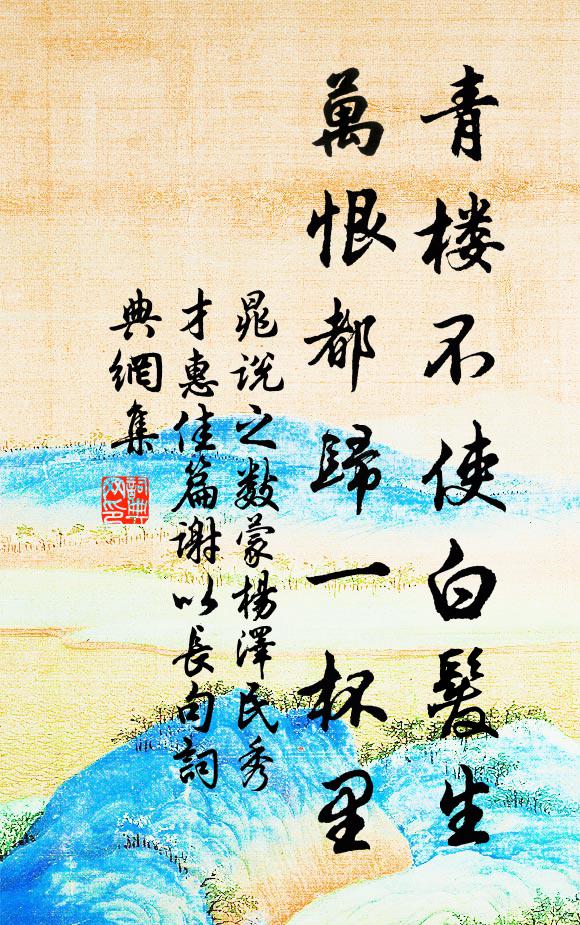 青楼不使白髮生
萬恨都歸一杯里
晁說之數蒙楊澤民秀
才惠佳篇謝以長句詞
典網集
詞典